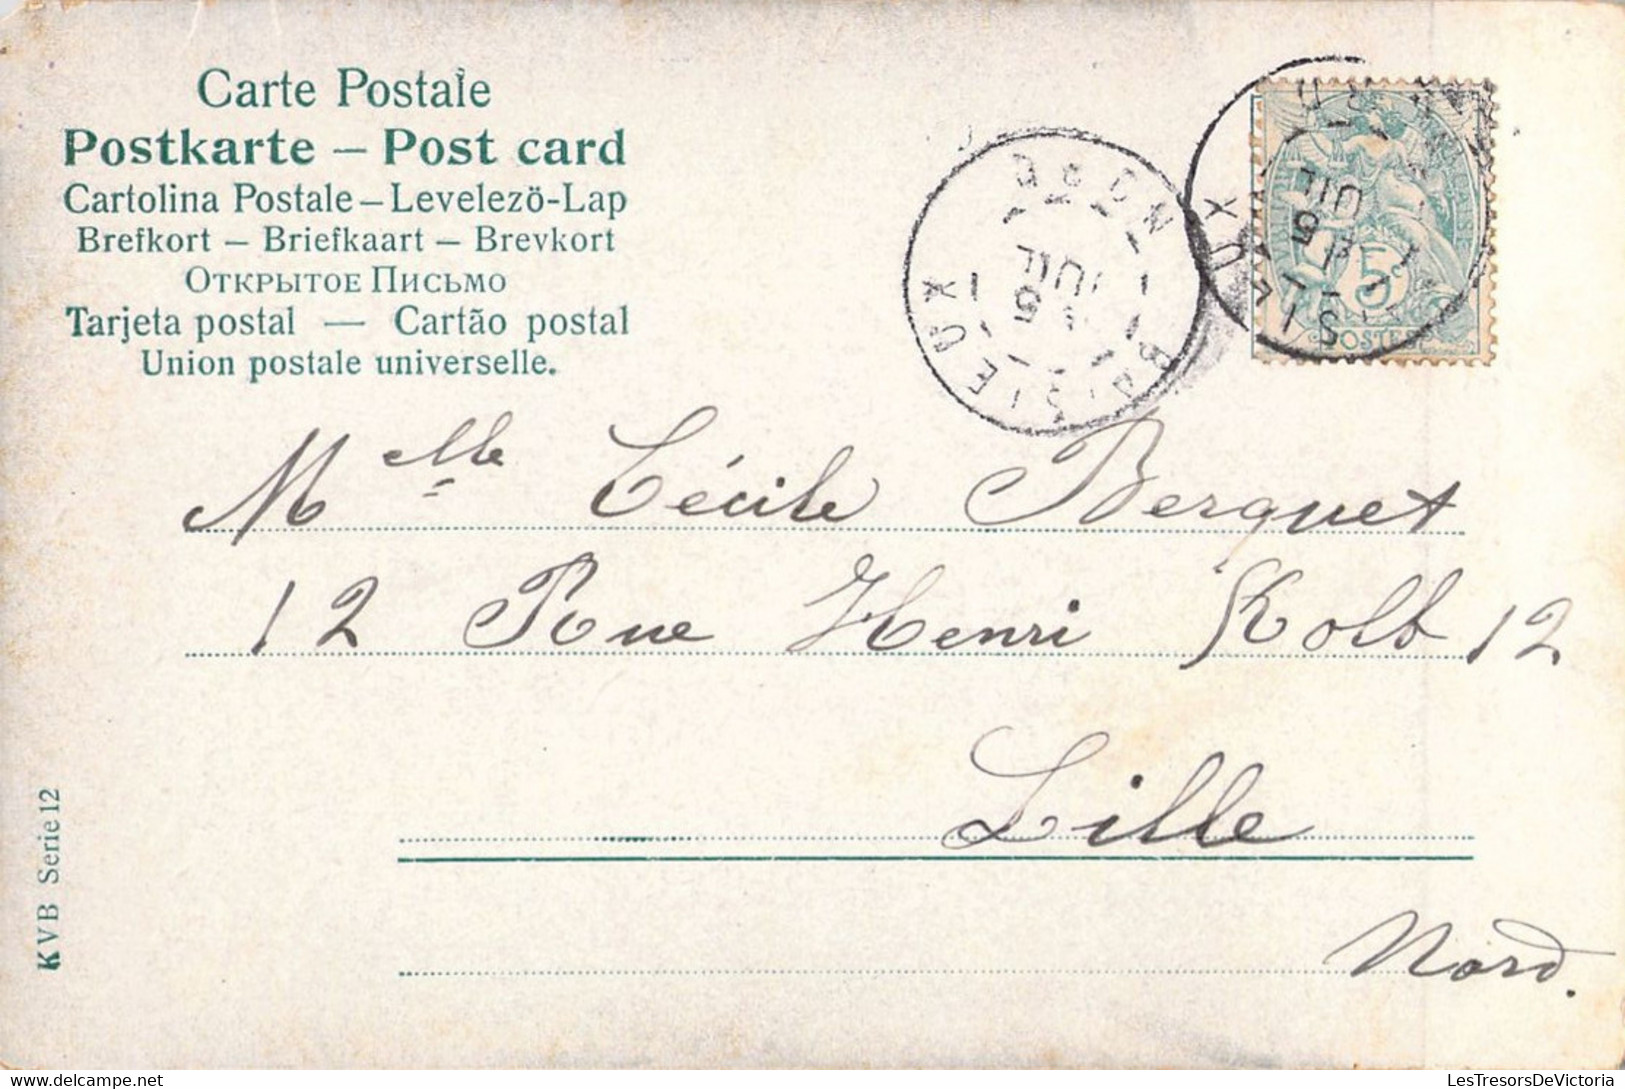 Carte Postale
Postkarte – Post card
Cartolina Postale – Levelezö-Lap
Brefkort – Briefkaart – Brevkort
Открытое Письмо
Tarjeta postal — Cartão postal
Union postale universelle.
5c
POSTES
JUIL
5
JUIL
5
Mlle Cécile Berquet
12 Rue Henri Kolb 12
Lille
Nord.
KVB Serie 12
LesTresorsDeVictoria